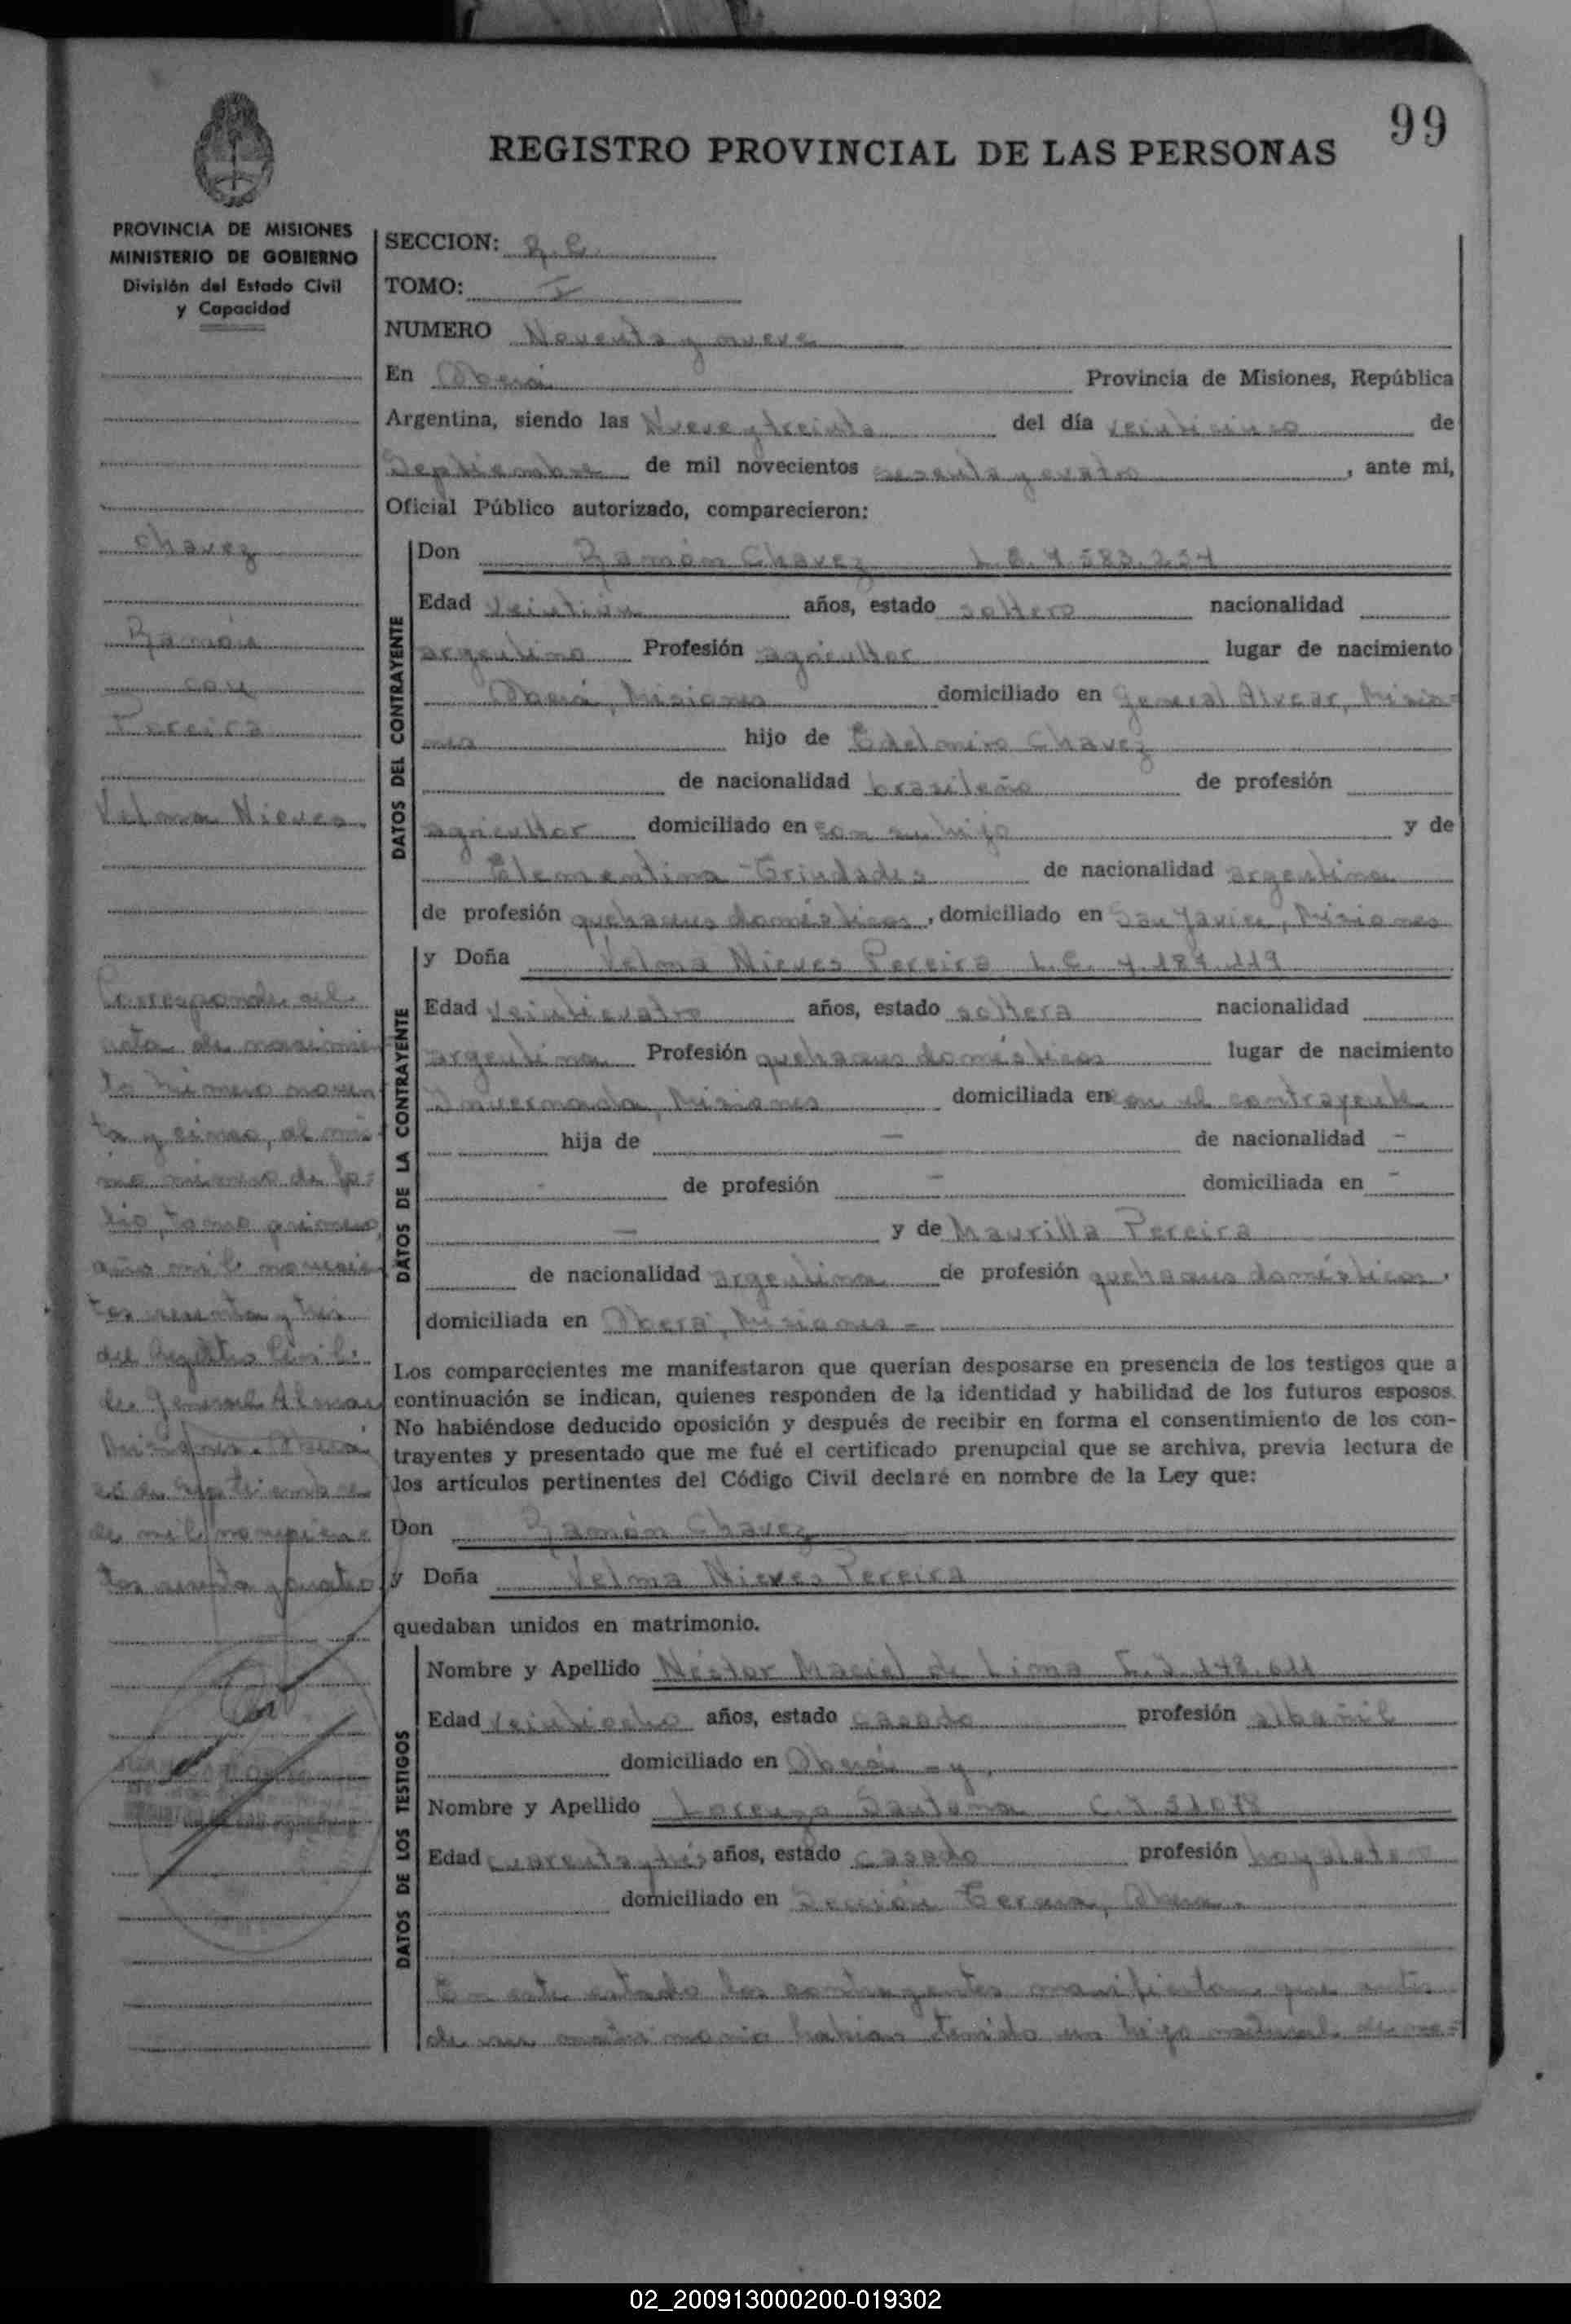 99
REGISTRO PROVINCIAL DE LAS PERSONAS
PROVINCIA DE MISIONES
MINISTERIO DE GOBIERNO
División del Estado Civil
y Capacidad
Chavez
Ramón
con
Pereira
Velma Nieves
Corresponde al
acta de nacimien
to número noven
ta y cinco, al mis
mo número de fo-
lio, tomo primero,
año mil novecien
tos sesenta y tres
del Registro Civil
de General Alvear
Misiones. Oberá
de Septiembre
de mil novecien-
tos sesenta y cuatro
SECCION: R.C.
TOMO: I
NUMERO Noventa y nueve
En Oberá Provincia de Misiones, República
Argentina, siendo las Nueve y treinta del día veinticinco de
Septiembre de mil novecientos sesenta y cuatro, ante mi,
Oficial Público autorizado, comparecieron:
DATOS DEL CONTRAYENTE
Don Ramón Chavez L.E. 7.583.254
Edad Veintiún años, estado soltero nacionalidad
argentino Profesión agricultor lugar de nacimiento
Oberá, Misiones domiciliado en General Alvear, Misio-
nes hijo de Edelmiro Chavez
de nacionalidad brasileño de profesión
agricultor domiciliado en con su hijo y de
Clementina Trindades de nacionalidad argentina
de profesión quehaceres domésticos, domiciliado en San Javier, Misiones
DATOS DE LA CONTRAYENTE
y Doña Velma Nieves Pereira L.C. 4.187.119
Edad Veinticuatro años, estado soltera nacionalidad
argentina Profesión quehaceres domésticos lugar de nacimiento
Invernada, Misiones domiciliada en con el contrayente
hija de — de nacionalidad -
- de profesión - domiciliada en -
— y de Maurilla Pereira
de nacionalidad argentina de profesión quehaceres domésticos,
domiciliada en Oberá, Misiones -
Los comparecientes me manifestaron que querían desposarse en presencia de los testigos que a
continuación se indican, quienes responden de la identidad y habilidad de los futuros esposos.
No habiéndose deducido oposición y después de recibir en forma el consentimiento de los con-
trayentes y presentado que me fué el certificado prenupcial que se archiva, previa lectura de
los artículos pertinentes del Código Civil declaré en nombre de la Ley que:
Don Ramón Chavez
y Doña Velma Nieves Pereira
quedaban unidos en matrimonio.
DATOS DE LOS TESTIGOS
Nombre y Apellido Néstor Maciel de Lima C.I. 148.611
Edad Veintiocho años, estado casado profesión albañil
domiciliado en Oberá - y
Nombre y Apellido Lorenzo Santana C.I. 51.078
Edad cuarenta y tres años, estado casado profesión hoyalatero
domiciliado en Sección Tercera, Oberá.
En este estado los contrayentes manifiestan que antes
de su matrimonio habian tenido un hijo natural de no-
02_200913000200-019302